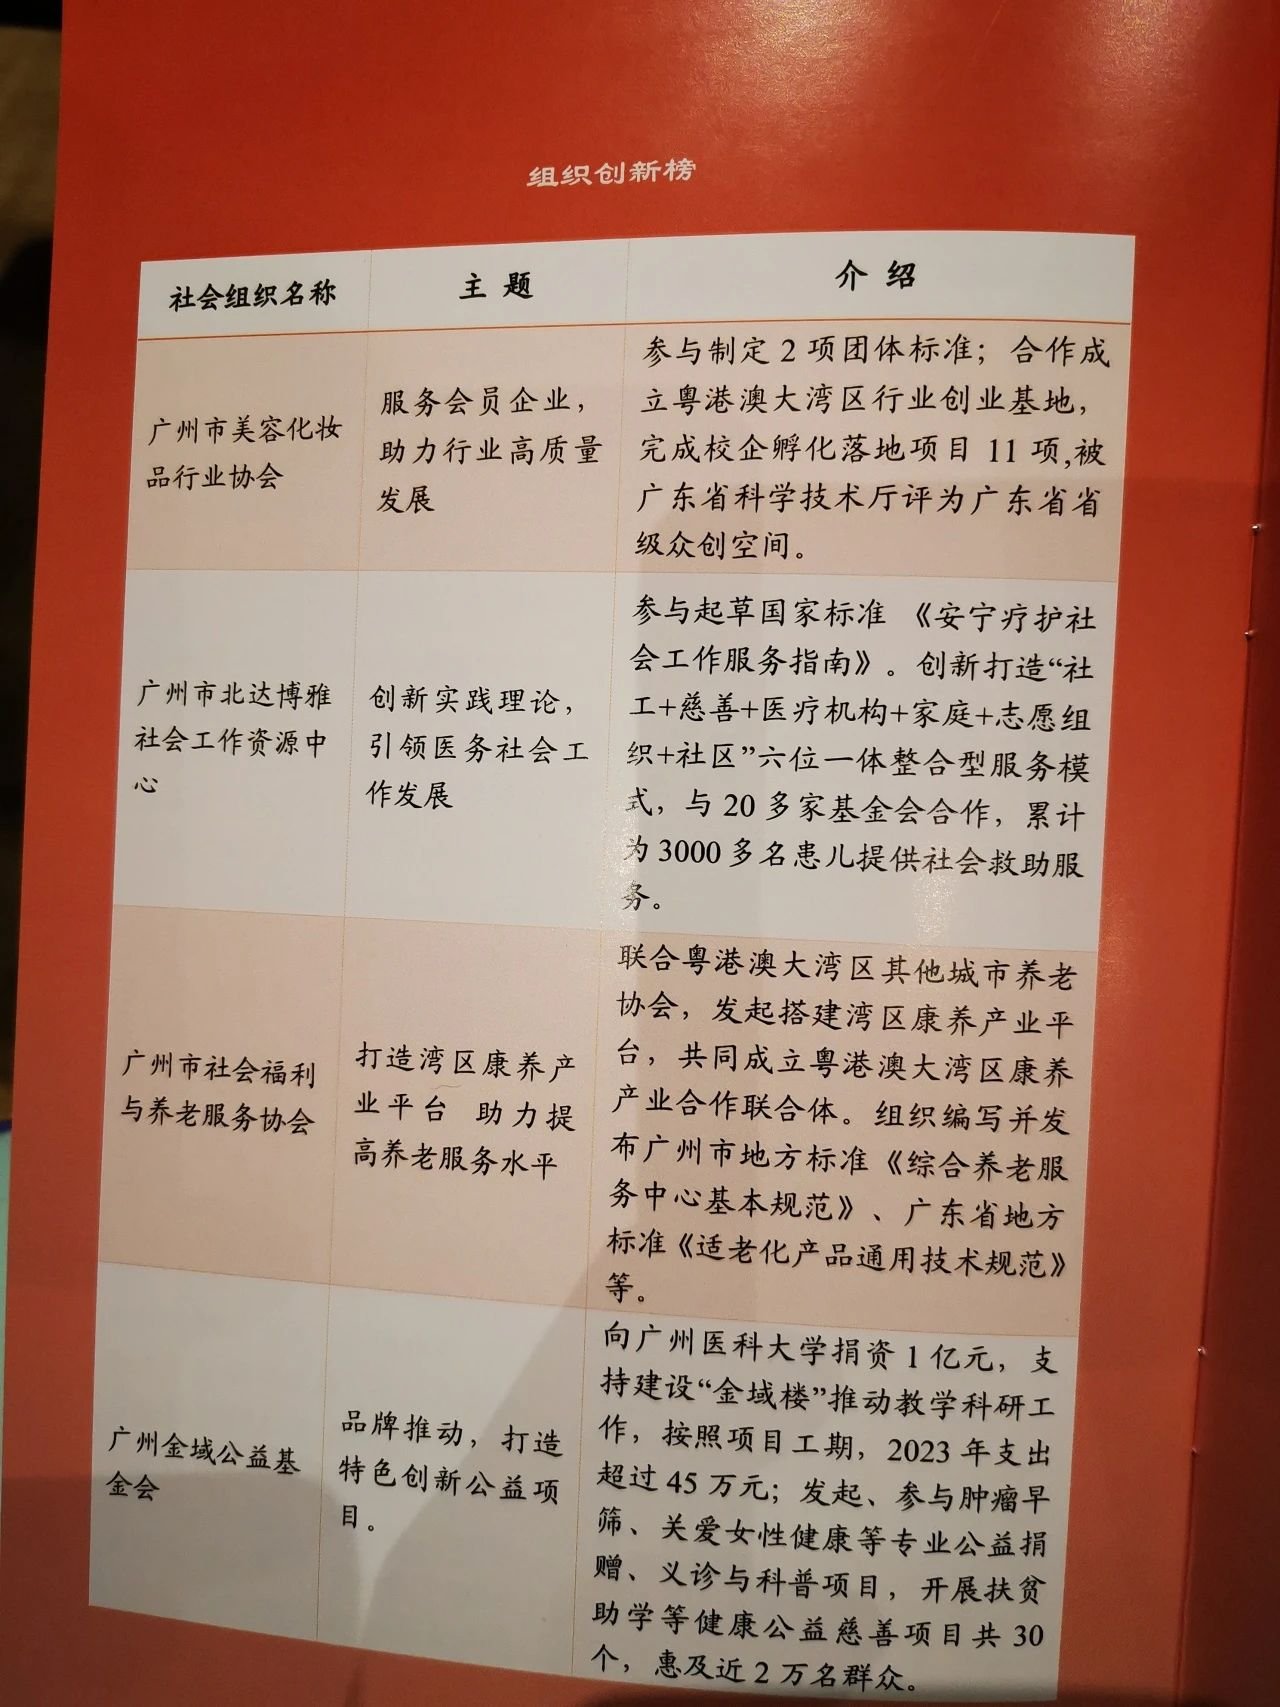 组织创新榜
社会组织名称
主 题
介 绍
广州市美容化妆
品行业协会
服务会员企业，
助力行业高质量
发展
参与制定 2 项团体标准；合作成
立粤港澳大湾区行业创业基地，
完成校企孵化落地项目 11 项,被
广东省科学技术厅评为广东省省
级众创空间。
广州市北达博雅
社会工作资源中
心
创新实践理论，
引领医务社会工
作发展
参与起草国家标准 《安宁疗护社
会工作服务指南》。创新打造“社
工+慈善+医疗机构+家庭+志愿组
织+社区”六位一体整合型服务模
式，与 20 多家基金会合作，累计
为 3000 多名患儿提供社会救助服
务。
广州市社会福利
与养老服务协会
打造湾区康养产
业平台 助力提
高养老服务水平
联合粤港澳大湾区其他城市养老
协会，发起搭建湾区康养产业平
台，共同成立粤港澳大湾区康养
产业合作联合体。组织编写并发
布广州市地方标准《综合养老服
务中心基本规范》、广东省地方
标准《适老化产品通用技术规范》
等。
广州金域公益基
金会
品牌推动，打造
特色创新公益项
目。
向广州医科大学捐资 1 亿元，支
持建设“金域楼”推动教学科研工
作，按照项目工期，2023 年支出
超过 45 万元；发起、参与肿瘤早
筛、关爱女性健康等专业公益捐
赠、义诊与科普项目，开展扶贫
助学等健康公益慈善项目共 30
个，惠及近 2 万名群众。